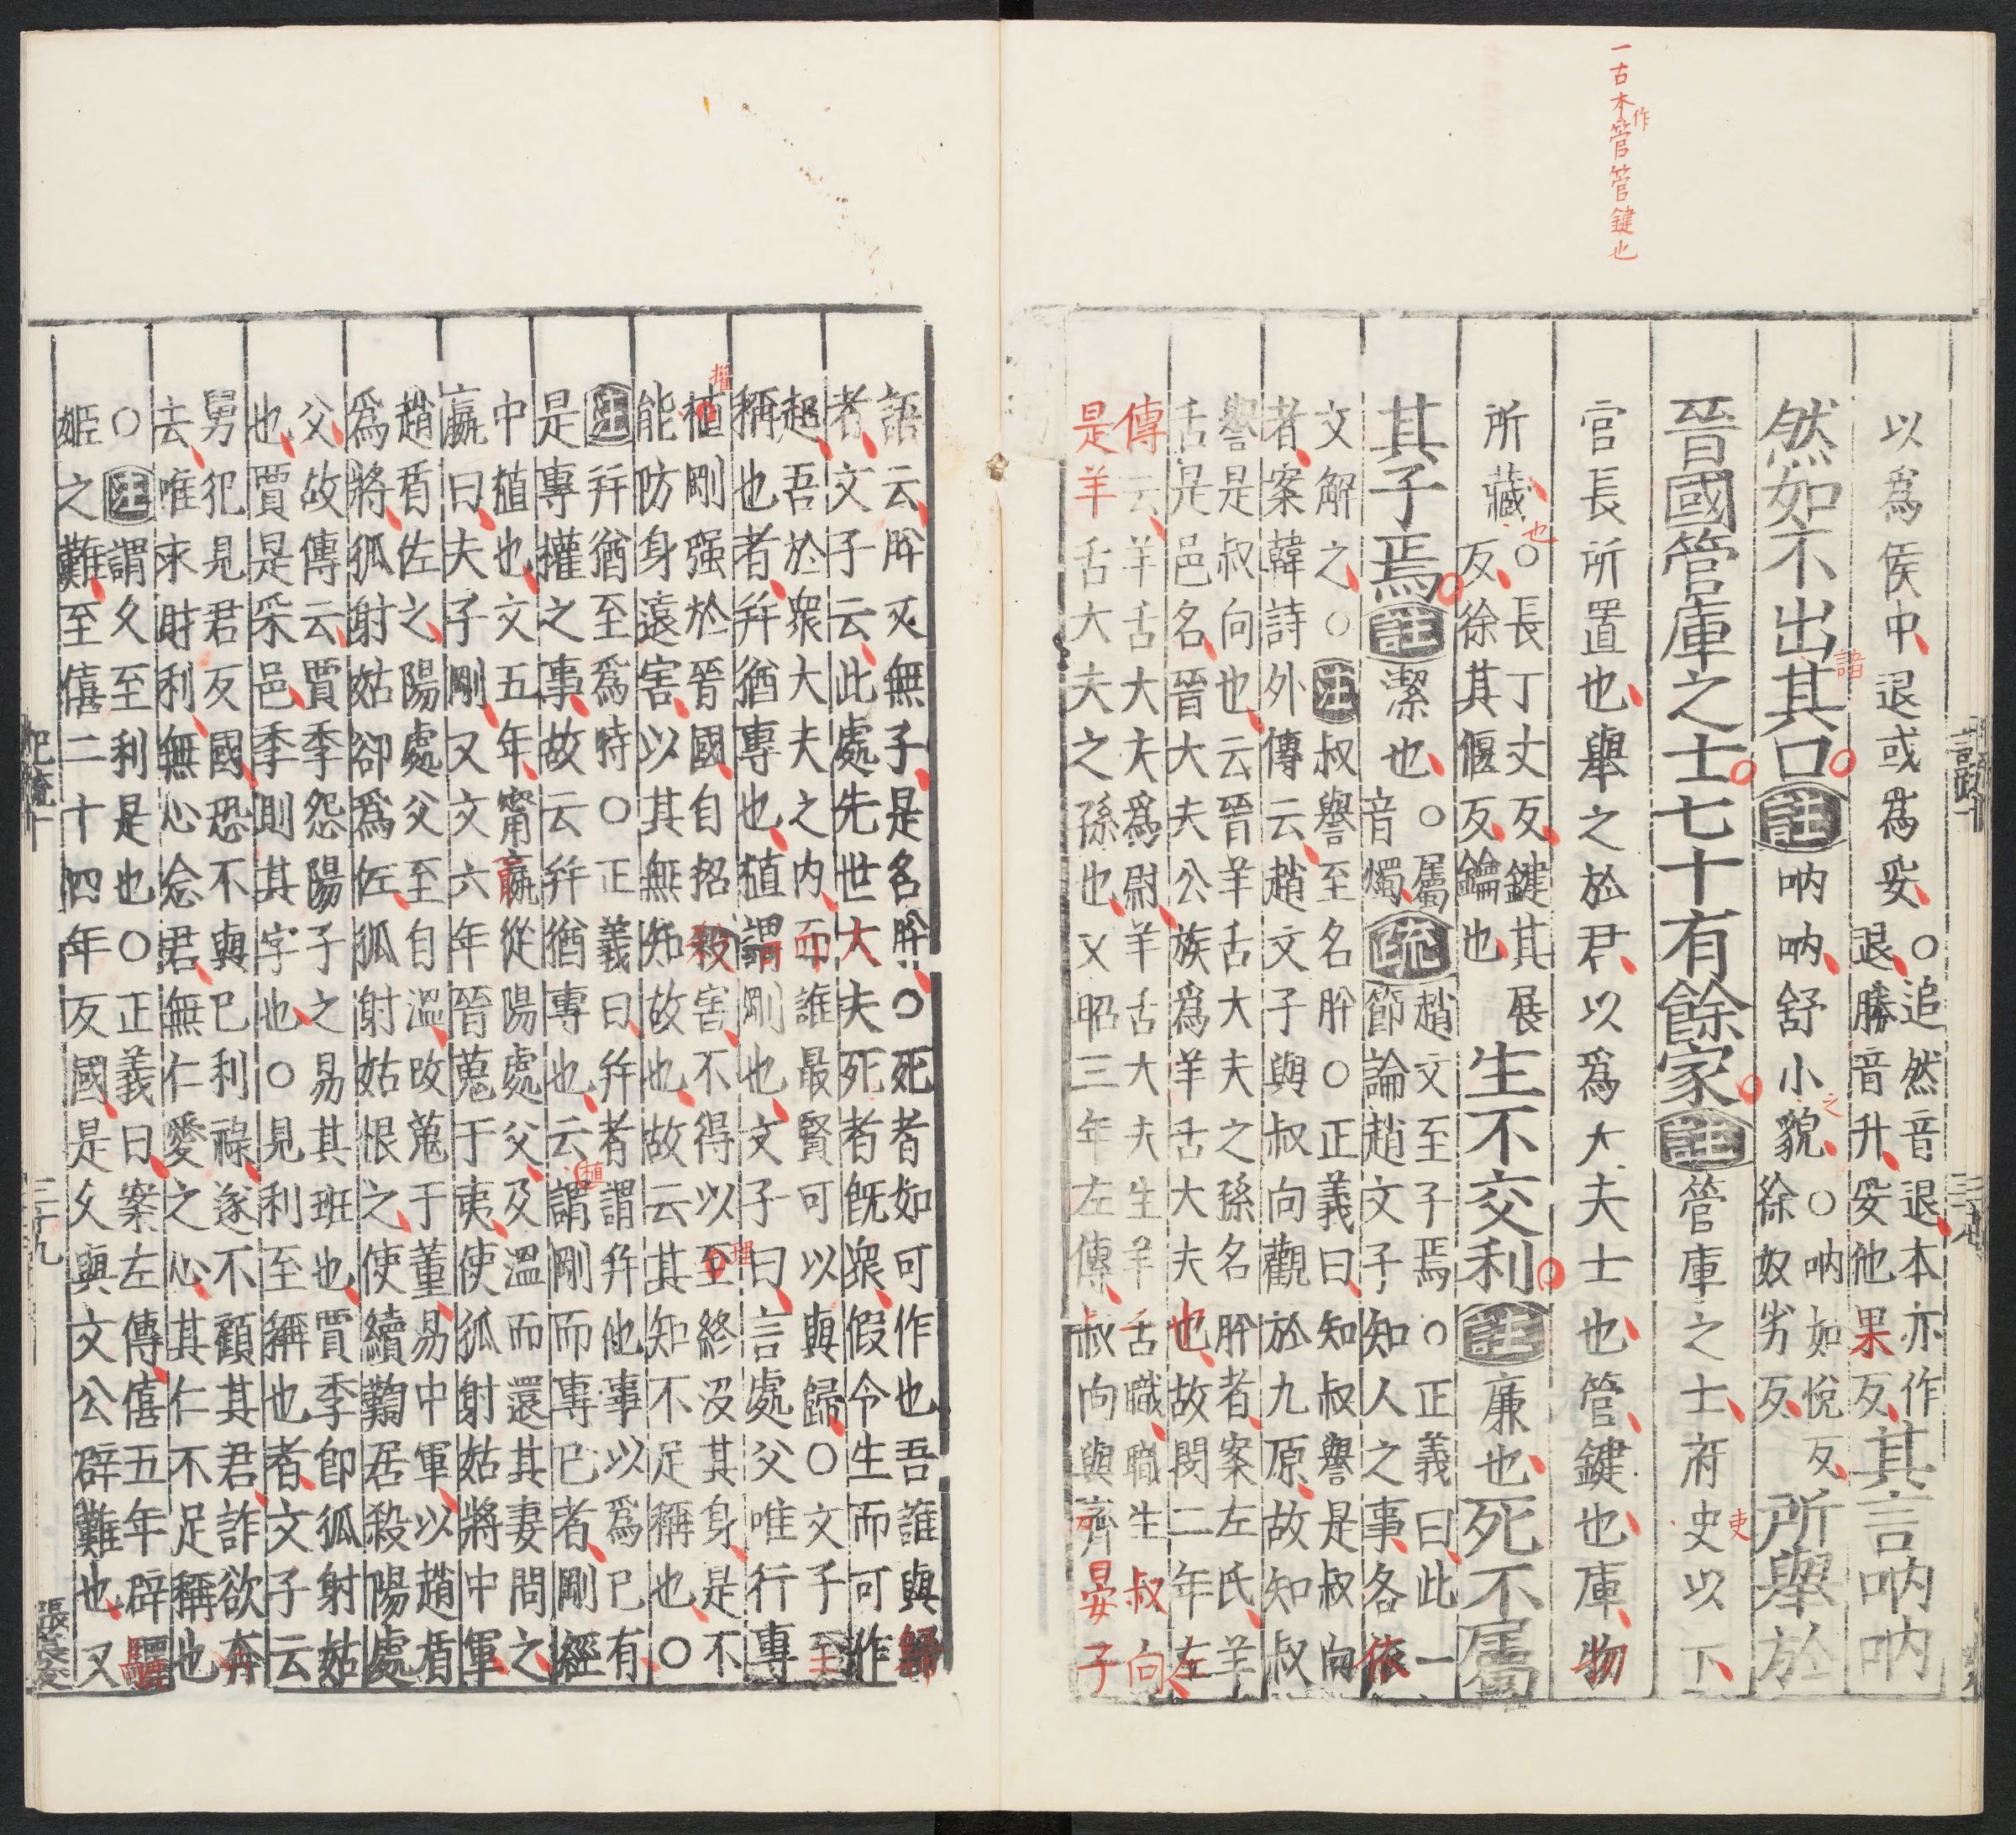 一古本作管管鍵也
以為侯中退或為妥○追然音退本亦作
退勝音升妥他果反其言呐呐
然如不出其口註呐呐舒小貌○呐如悅反
徐奴劣反所舉於
晉國管庫之士七十有餘家註管庫之士府史以下
官長所置也舉之於君以為大夫士也管鍵也庫物
所藏○長丁丈反鍵其展
反徐其偃反鑰也生不交利註廉也死不屬
其子焉註潔也○屬
音燭疏趙文至子焉○正義曰此一
節論趙文子知人之事各依
文解之○注叔譽至名肸○正義曰知叔譽是叔向
者案韓詩外傳云趙文子與叔向觀於九原故知叔
譽是叔向也云晉羊舌大夫之孫名肸者案左氏羊
舌是邑名晉大夫公族為羊舌大夫也故閔二年左
傳云羊舌大夫為尉羊舌大夫生羊舌職職生叔向
是羊舌大夫之孫也又昭三年左傳叔向與齊晏子
語云肸又無子是名肸○死者如可作也吾誰與歸
者文子云此處先世大夫死者既眾假令生而可作
起吾於眾大夫之內而誰最賢可以與歸○文子至
稱也者并猶專也植謂剛也文子曰言處父唯行專
植剛强於晉國自招殺害不得以至終沒其身是不
能防身遠害以其無知故也故云其知不足稱也○
注并猶至為特○正義曰并者謂并他事以為己有
是專權之事故云并猶專也云謂剛而專己者剛經
中植也文五年甯嬴從陽處父及溫而還其妻問之
嬴曰夫子剛又文六年晉蒐于夷使狐射姑將中軍
趙盾佐之陽處父至自溫改蒐于董易中軍以趙盾
為將狐射姑卻為佐狐射姑恨之使續鞫居殺陽處
父故傳云賈季怨陽子之易其班也賈季即狐射姑
也賈是采邑季則其字也○見利至稱也者文子云
舅犯見君反國恐不與己利祿遂不顧其君詐欲奔
去唯求財利無心念君無仁愛之心其仁不足稱也
○注謂久至利是也○正義曰案左傳僖五年辟驪
姬之難至僖二十四年反國是久與文公辟難也又